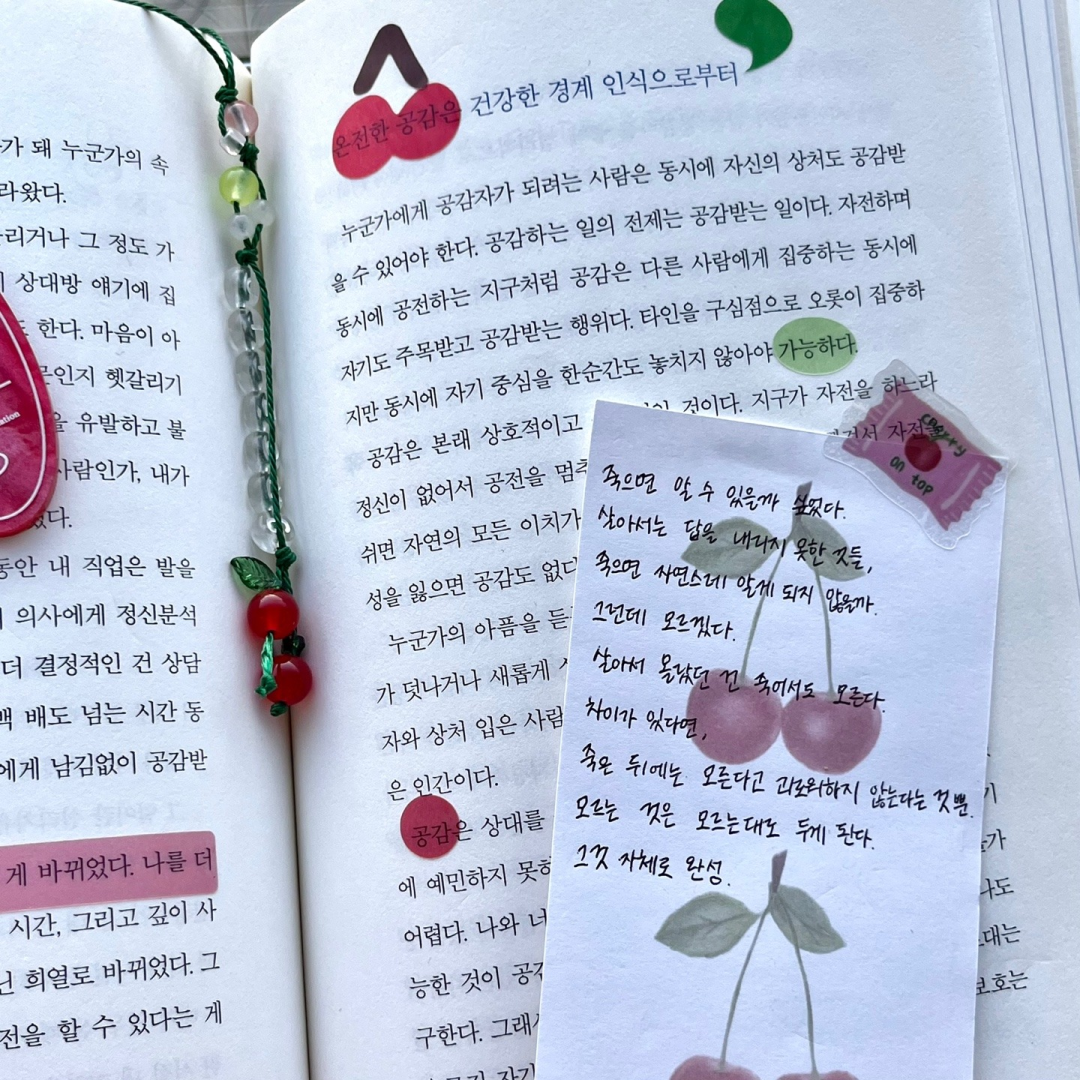 가 돼 누군가의 속
라왔다.
리거나 그 정도 가
상대방 얘기에 집
한다. 마음이 아
문인지 헷갈리기
을 유발하고 불
사람인가, 내가
았다.
동안 내 직업은 발을
의사에게 정신분석
더 결정적인 건 상담
백 배도 넘는 시간 동
에게 남김없이 공감받
게 바뀌었다. 나를 더
시간, 그리고 깊이 사
닌 희열로 바뀌었다. 그
전을 할 수 있다는 게
온전한 공감은 건강한 경계 인식으로부터
누군가에게 공감자가 되려는 사람은 동시에 자신의 상처도 공감받
을 수 있어야 한다. 공감하는 일의 전제는 공감받는 일이다. 자전하며
동시에 공전하는 지구처럼 공감은 다른 사람에게 집중하는 동시에
자기도 주목받고 공감받는 행위다. 타인을 구심점으로 오롯이 집중하
지만 동시에 자기 중심을 한순간도 놓치지 않아야 가능하다.
공감은 본래 상호적이고 것이다. 지구가 자전을 하느라
정신이 없어서 공전을 멈추 자전을
쉬면 자연의 모든 이치가
성을 잃으면 공감도 없다
누군가의 아픔을 듣
가 덧나거나 새롭게
자와 상처 입은 사람
은 인간이다.
공감은 상대를
에 예민하지 못하
어렵다. 나와 너
능한 것이 공감
구한다. 그래서
보호는
cherry
on top
죽으면 알 수 있을까 싶었다.
살아서는 답을 내리지 못한 것들,
죽으면 자연스레 알게 되지 않을까.
그런데 모르겠다.
살아서 몰랐던 건 죽어서도 모른다.
차이가 있다면,
죽은 뒤에는 모른다고 괴로워하지 않는다는 것뿐.
모르는 것은 모르는대로 두게 된다.
그것 자체로 완성.